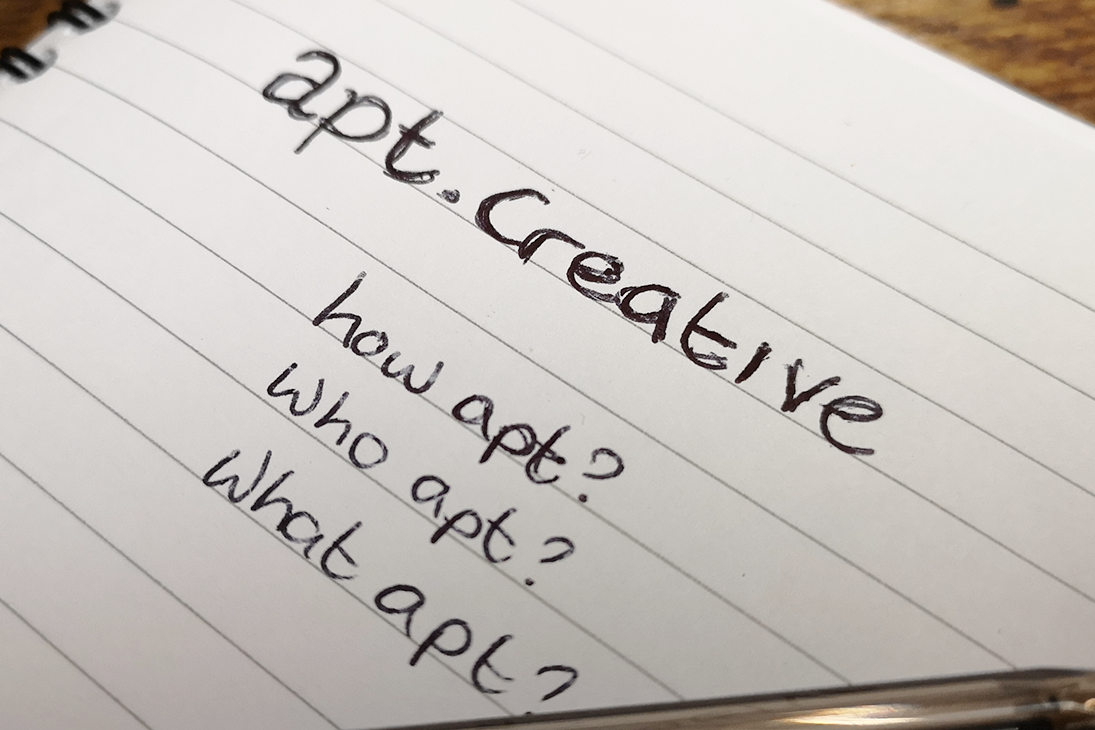 apt.creative
how apt?
who apt?
what apt?